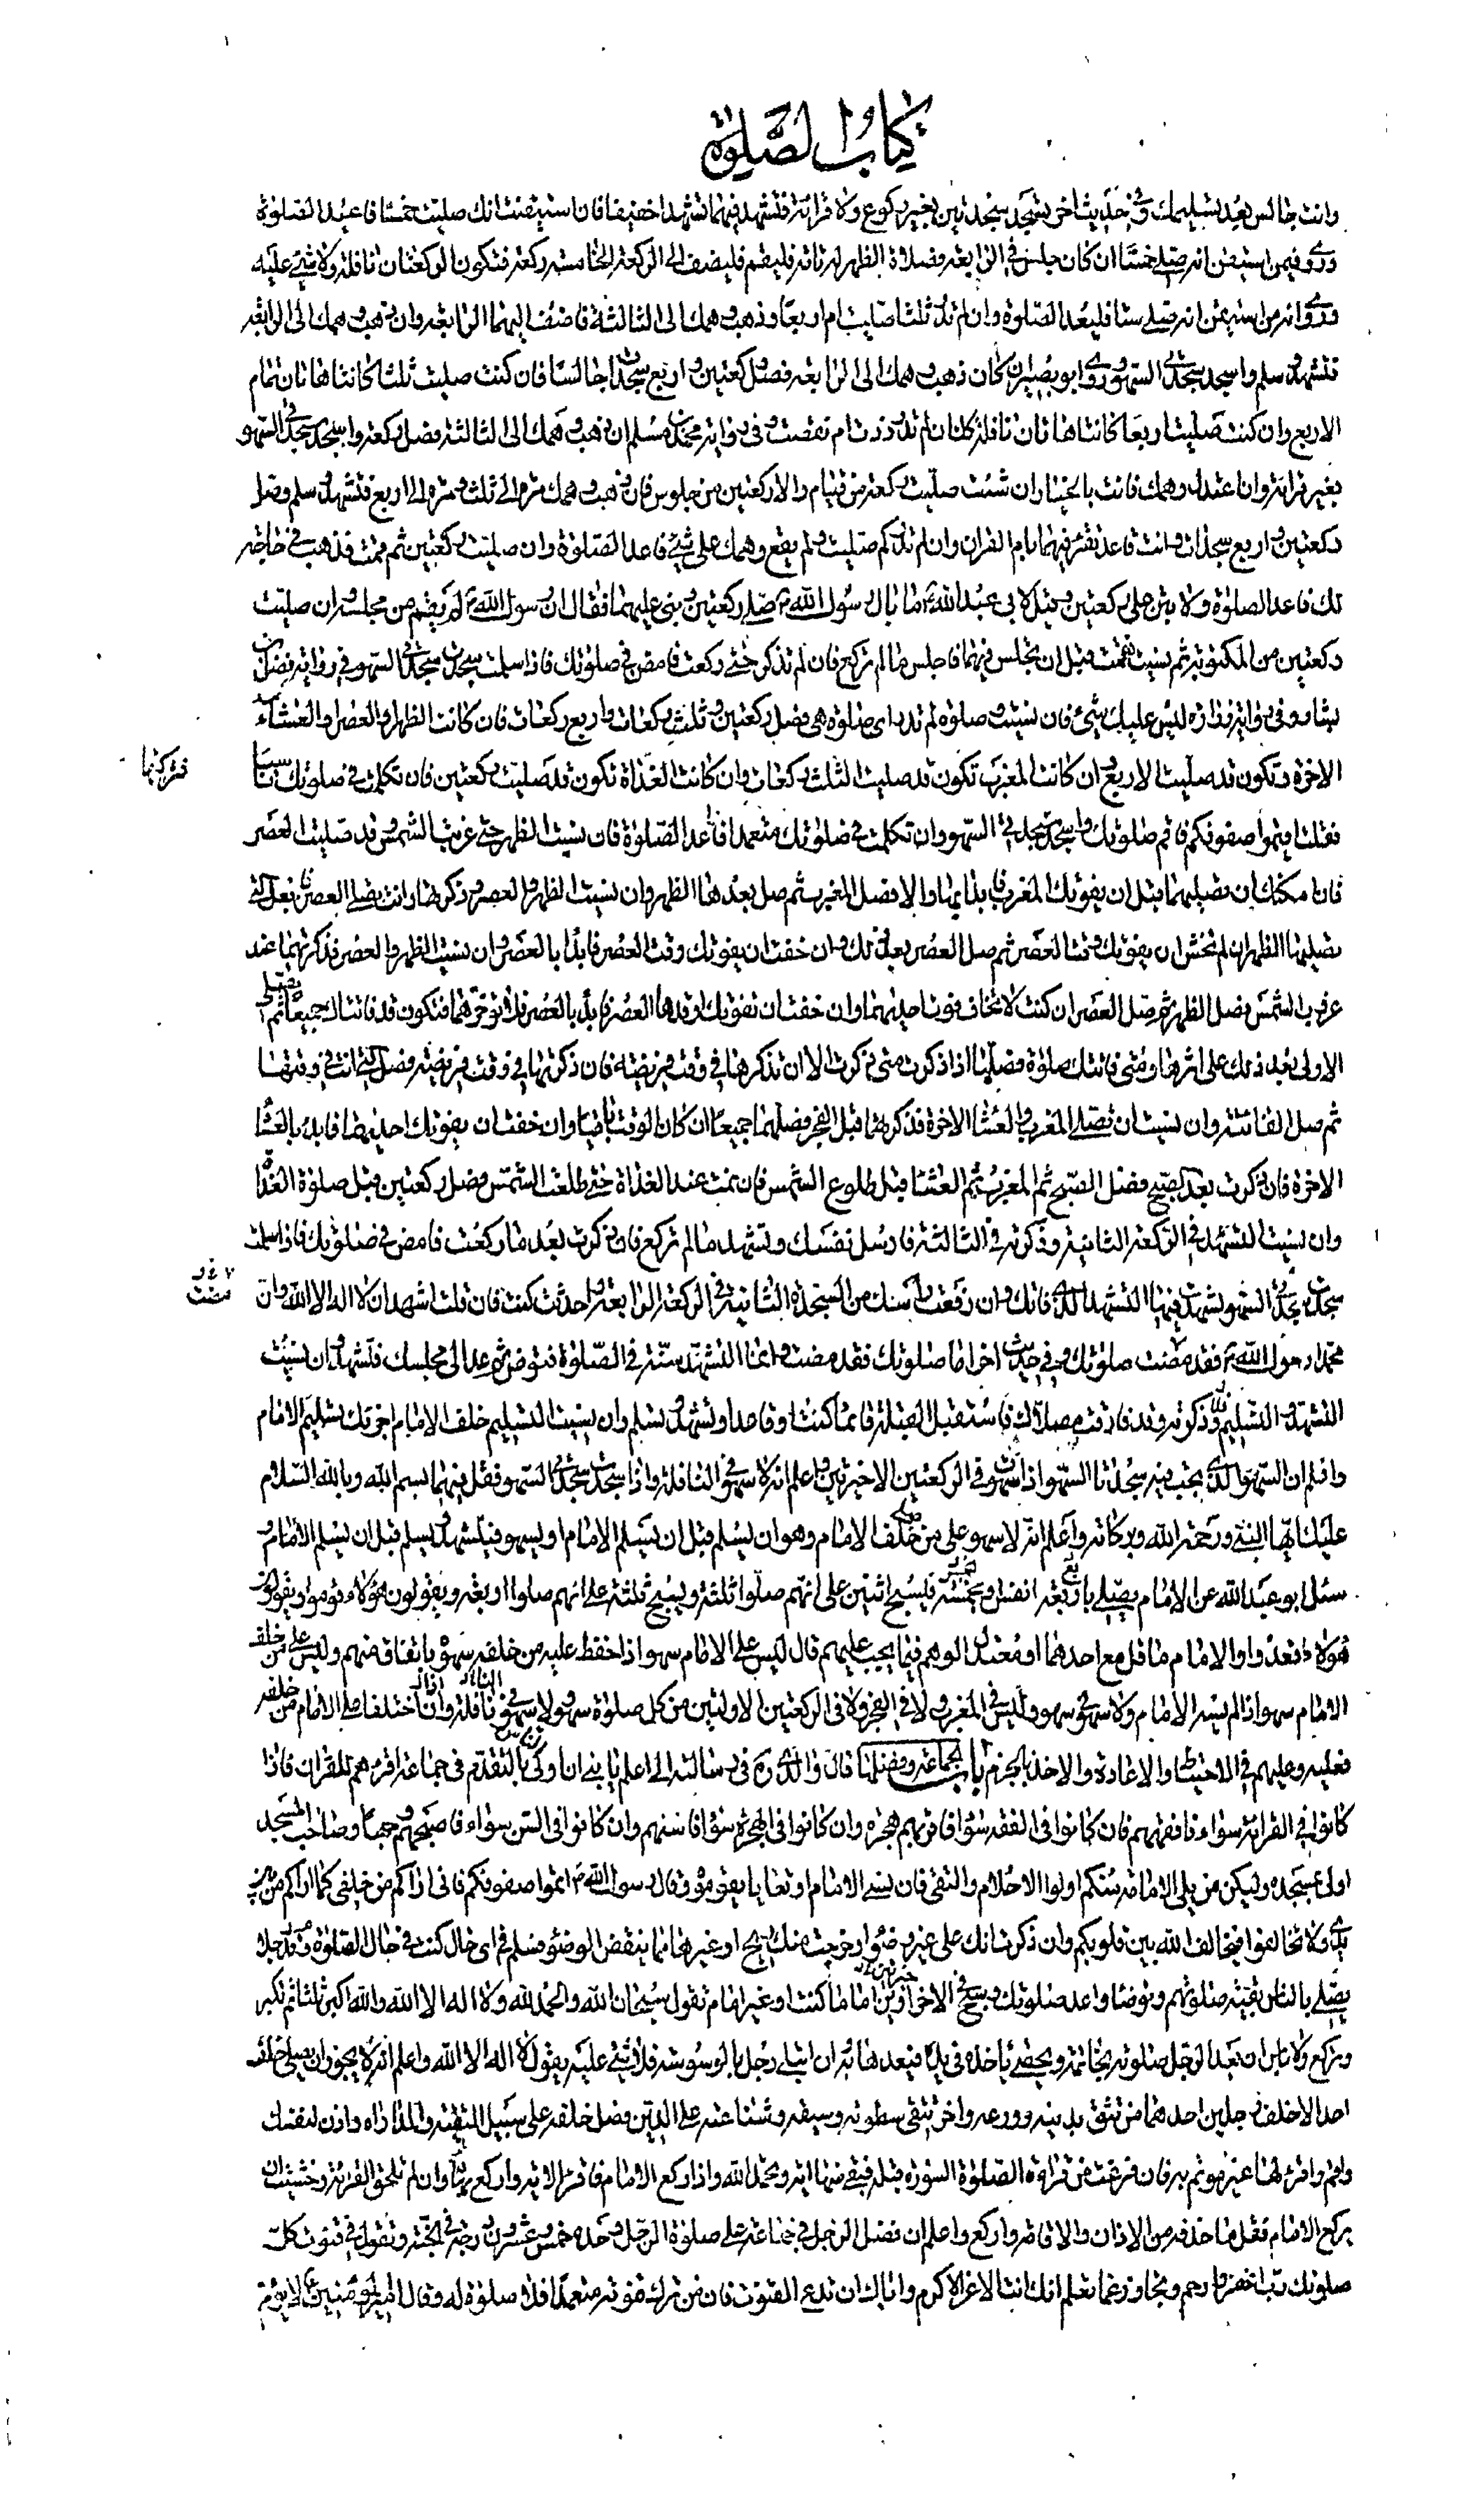 كتاب الصلوة
وانت جالس بعد تسليمك وفي حديث اخر يسجد سجدتين بغير ركوع ولا قرائة فتشهد فيهما تشهدا خفيفا فان استيقنت انك صليت خمسا فاعد الصلوة
وروى فيمن استيقن انه صلى خمسا ان كان جلس في الرابعة فصلاة الظهر له تامة فليقم فليضف الى الركعة الخامسة ركعة فتكون الركعتان نافلة ولا شئ عليه
وروى انه من استيقن انه صلى ستا فليعد الصلوة وان لم تدر ثلثا صليت ام اربعا وذهب وهمك الى الثالثة فاضف اليهما الرابعة وان ذهب وهمك الى الرابعة
فتشهد وسلم واسجد سجدتى السهو وروى ابو بصير ان كان ذهب وهمك الى الرابعة فصل ركعتين واربع سجدات جالسا فان كنت صليت ثلثا كانتا هاتان تمام
الاربع وان كنت صليت اربعا كانتا هاتان نافلة كك ان لم تدر زدت ام نقصت وفى رواية محمد بن مسلم ان ذهب وهمك الى الثالثة فصل ركعة واسجد سجدتى السهو
بغير قرائة وان اعتدل وهمك فانت بالخيار ان شئت صليت ركعة من قيام والا ركعتين من جلوس فان ذهب وهمك مرة الى ثلث ومرة الى اربع فتشهد وسلم وصل
ركعتين واربع سجدات وانت قاعد تقرء فيهما بام القران وان لم تدر كم صليت ولم يقع وهمك على شئ فاعد الصلوة وان صليت ركعتين ثم قمت فذهبت في حاجة
لك فاعد الصلوة ولا تبن على ركعتين وقيل لابى عبد الله ما بال رسول الله صلى ركعتين وبنى عليهما فقال ان رسول الله لم يقم من مجلسه وان صليت
ركعتين من المكتوبة ثم نسيت فقمت قبل ان تجلس فيهما فاجلس ما لم تركع فان لم تذكر حتى ركعت فامض في صلوتك فاذا سلمت سجدت سجدتى السهو في رواية فضيل بن
يسار وفى رواية زرارة ليس عليك شئ فان نسيت صلوة لم تدر اى صلوة هى فصل ركعتين وثلث ركعات واربع ركعات فان كانت الظهر او العصر او العشاء
الاخرة تكون قد صليت الاربع وان كانت المغرب تكون قد صليت الثلث ركعات وان كانت الغداة تكون قد صليت ركعتين فان تكلمت في صلوتك ناسيا
فقلت اقيموا صفوفكم فاتم صلوتك واسجد سجدتى السهو وان تكلمت في صلوتك متعمدا فاعد الصلوة فان نسيت الظهر حتى غربت الشمس وقد صليت العصر
فان امكنك ان تصليهما قبل ان يفوتك المغرب فابدأ بها والا فصل المغرب ثم صل بعدها الظهر وان نسيت الظهر والعصر وذكرتها وانت تصلى العصر فاجعل التى
تصليها الظهر ان لم تخش ان يفوتك وقت العصر ثم صل العصر بعد ذلك وان خفت ان يفوتك وقت العصر فابدأ بالعصر وان نسيت الظهر والعصر فذكرتهما عند
غروب الشمس فصل الظهر ثم صل العصر ان كنت لا تخاف فوت احديهما وان خفت ان تفوتك احديهما فابدأ بالعصر ولا تؤخرها فتكون قد فاتتاك جميعا ثم تصلى
الاولى بعد ذلك على اثرها ومتى فاتتك صلوة فصلها اذا ذكرت متى ذكرت الا ان تذكرها في وقت فريضة فان ذكرتها في وقت فريضة فصل التى انت في وقتها
ثم صل الفائتة وان نسيت ان تصلى المغرب والعشا الاخرة فذكرتهما قبل الفجر فصلهما جميعا ان كان الوقت باقيا وان خفت ان يفوتك احديهما فابدء بالعشا
الاخرة فان ذكرت بعد الصبح فصل الصبح ثم المغرب ثم العشا قبل طلوع الشمس فان نمت عند الغداة حتى طلعت الشمس فصل ركعتين قبل صلوة الغداة
وان نسيت التشهد في الركعة الثانية وذكرته في الثالثة فارسل نفسك وتشهد ما لم تركع فان ذكرت بعد ما ركعت فامض في صلوتك فاذا سلمت
سجدت سجدتى السهو وتشهدت فيهما التشهد الذى فاتك وان رفعت راسك من السجدة الثانية في الركعة الرابعة واحدثت كنت فان قلت اشهد ان لا اله الا الله وان
محمدا رسول الله فقد مضت صلوتك وفي حديث اخر اما صلوتك فقد مضت وانما التشهد سنة في الصلوة فتوضأ ثم عد الى مجلسك فتشهد وان نسيت
التشهد والتسليم وذكرته وقد فارقت مصلاك فاستقبل القبلة قائما كنت او قاعدا وتشهد وتسلم وان نسيت التسليم خلف الامام اجزئك تسليم الامام
واعلم ان السهو الذى يجب فيه سجدتا السهو اذا سهوت في الركعتين الاخيرتين واعلم انه لا سهو في النافلة واذا سجدت سجدتى السهو فقل فيهما بسم الله وبالله السلام
عليك ايها النبى ورحمة الله وبركاته واعلم انه لا سهو على من خلف الامام وهو ان يسلم قبل ان يسلم الامام او يسهو فيتشهد ويسلم قبل ان يسلم الامام و
سئل ابو عبد الله عن الامام يصلى باربعة انفس او بخمسة فيسبح اثنين على انهم صلوا ثلثة ويسبح ثلثة على انهم صلوا اربعة ويقولون هؤلاء قوموا ويقولون
هؤلاء اقعدوا والامام مائل مع احدهما او معتدل الوهم فما يجب عليهم قال ليس على الامام سهو اذا حفظ عليه من خلفه سهوه باتفاق منهم وليس على من خلف
الامام سهو اذا لم يسه الامام ولا سهو في سهو وليس في المغرب ولا في الفجر ولا في الركعتين الاولتين من كل صلوة سهو ولا سهو في نافلة وان اختلف على الامام من خلفه
فعليه وعليهم في الاحتياط والاعادة والاخذ بالجزم باب الجماعة وفضلها قال والدى ره في رسالته الى اعلم يا بنى ان اولى بالتقدم في جماعة اقرءهم للقران فاذا
كانوا في القرائة سواء فافقههم فان كانوا فى الفقه سواء فاقربهم هجرة وان كانوا فى الهجرة سواء فاسنهم وان كانوا فى السن سواء فاصبحهم وجها وصاحب المسجد
اولى بمسجده وليكن من يلى الامام منكم اولوا الاحلام والتقى فان نسى الامام او تعايا يقوموه وقال رسول الله اتموا صفوفكم فانى اراكم من خلفى كما اراكم من بين
يدى ولا تخالفوا فيخالف الله بين قلوبكم وان ذكرت انك على غير وضوء او خرجت منك ريح او غيرها مما ينقض الوضوء فسلم في اى حال كنت في حال الصلوة وقدم رجلا
يصلى بالناس بقية صلوتهم وتوضأ واعد صلوتك وسبح في الاخراوين اماما كنت او غير امام تقول سبحان الله والحمد لله ولا اله الا الله والله اكبر ثلثا ثم تكبر
وتركع ولا باس ان يعد الرجل صلوته بخاتمه وبحصى ياخذه في يده فيعد هابه وان ابتلى رجل بالوسوسة فلا شئ عليه يقول لا اله الا الله واعلم انه لا يجوز ان تصلى خلف
احد الا خلف رجلين احدهما من تثق بدينه وورعه واخر تتقى سطوته وسيفه وشناعته على الدين وصل خلفه على سبيل التقية والمداراه واذن لنفسك
واقم واقرء لها غير مؤتم به فان فرغت من قراءة السورة قبله فبق منها اية ومجد الله واذا ركع الامام فاقرء الاية واركع بها وان لم تلحق القرائة وخشيت ان
يركع الامام فقل ما حذفه من الاذان والاقامة واركع واعلم ان فضل الرجل في جماعة على صلوة الرجل وحده خمس وعشرون درجة في الجنة وتقول في قنوت كل
صلوتك رب اغفر وارحم وتجاوز عما تعلم انك انت الاعز الاكرم واياك ان تدع القنوت فان من ترك قنوته متعمدا فلا صلوة له وقال امير المؤمنين لا يؤم